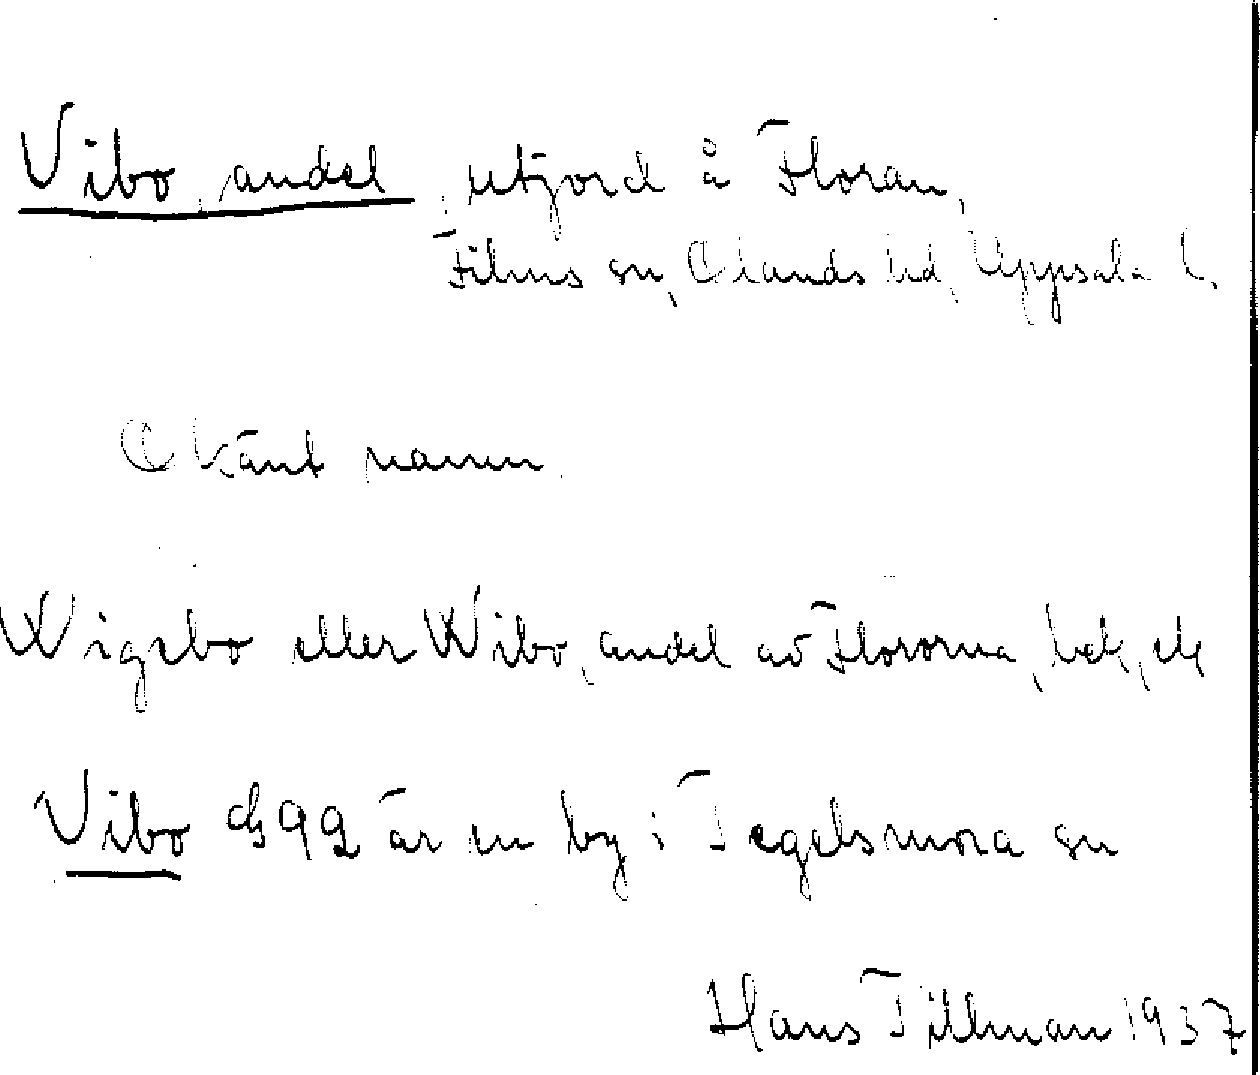 Vibo, andel, utjord å Floran,
Films sn, Olands hd, Uppsala l.
Okänt namn.
Wigsbo eller Wibo, andel av Flororna,
Vibo är en by i Tegelsmora sn
Hans Tillman 1937